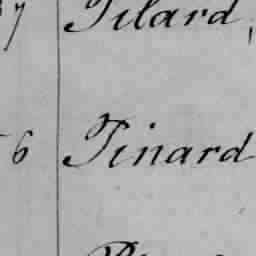 7 Pilard,
6 Pinard